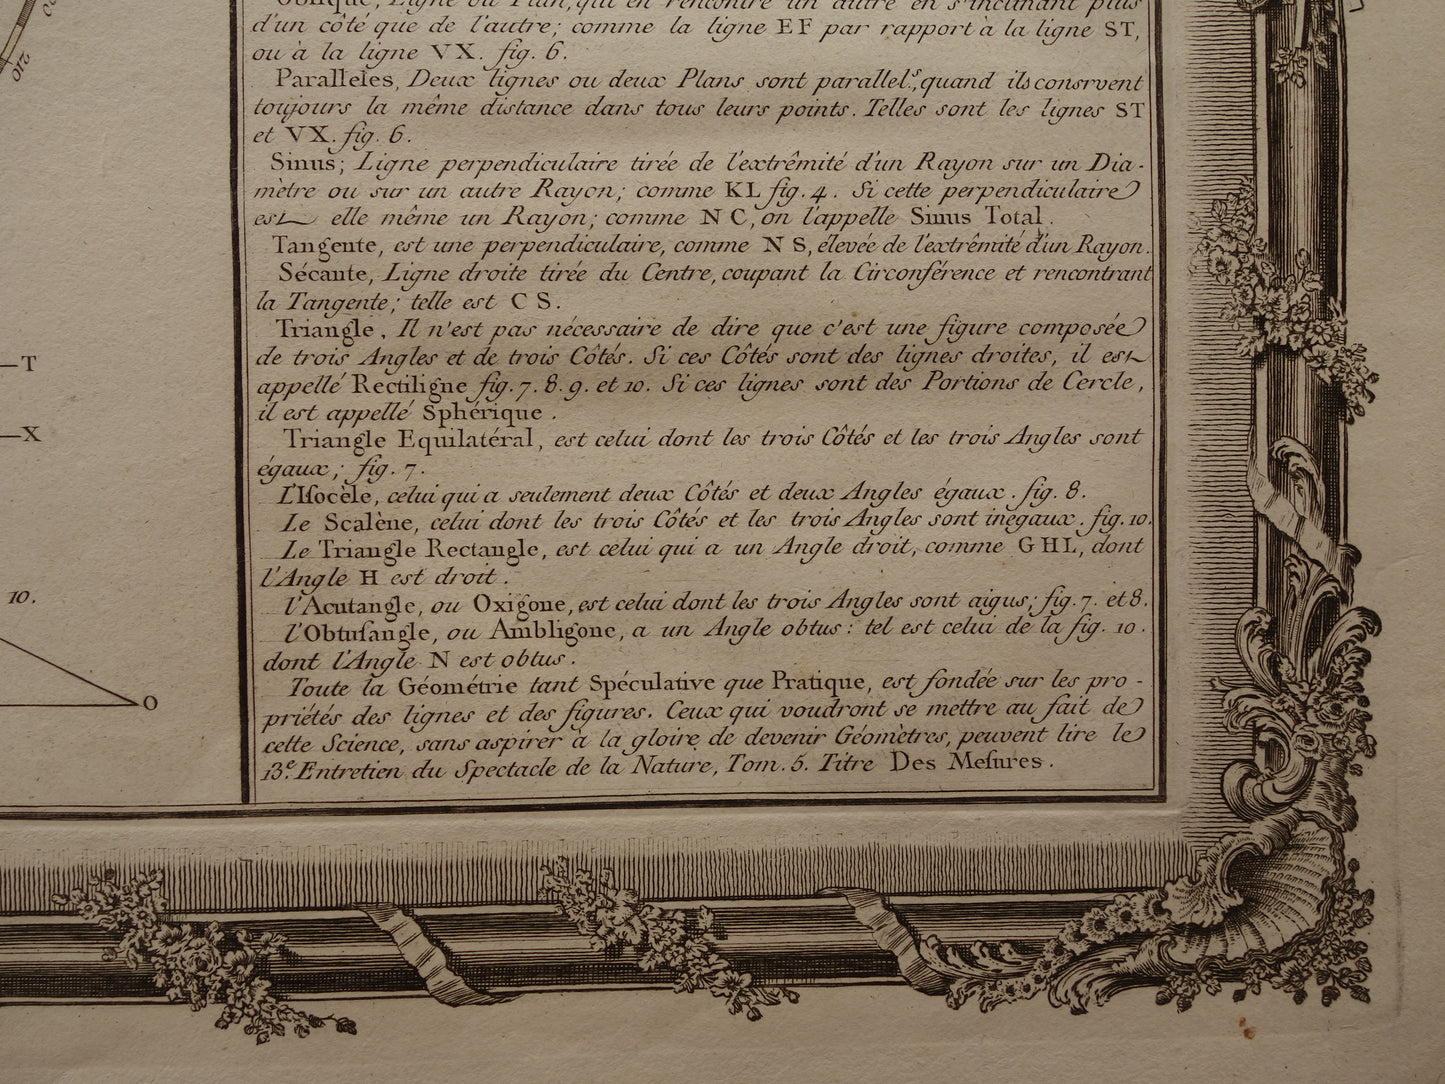 210
T
X
10.
O
Oblique, Ligne ou Plan, qui en rencontre un autre en s'inclinant plus
d'un côté que de l'autre; comme la ligne EF par rapport à la ligne ST,
ou à la ligne VX. fig. 6.
Paralleles, Deux lignes ou deux Plans sont parallel.s, quand ils consrvent
toujours la même distance dans tous leurs points. Telles sont les lignes ST
et VX. fig. 6.
Sinus; Ligne perpendiculaire tirée de l'extrêmité d'un Rayon sur un Dia-
mètre ou sur un autre Rayon; comme KL fig. 4. Si cette perpendiculaire
est elle même un Rayon; comme NC, on l'appelle Sinus Total.
Tangente, est une perpendiculaire, comme NS, élevée de l'extrêmité d'un Rayon.
Sécante, Ligne droite tirée du Centre, coupant la Circonférence et rencontrant
la Tangente; telle est CS.
Triangle, Il n'est pas nécessaire de dire que c'est une figure composée
de trois Angles et de trois Côtés. Si ces Côtés sont des lignes droites, il est
appellé Rectiligne fig. 7. 8. 9. et 10. Si ces lignes sont des Portions de Cercle,
il est appellé Sphérique.
Triangle Equilatéral, est celui dont les trois Côtés et les trois Angles sont
égaux; fig. 7.
L'Isocèle, celui qui a seulement deux Côtés et deux Angles égaux. fig. 8.
Le Scalène, celui dont les trois Côtés et les trois Angles sont inégaux. fig. 10.
Le Triangle Rectangle, est celui qui a un Angle droit, comme GHL, dont
l'Angle H est droit.
l'Acutangle, ou Oxigone, est celui dont les trois Angles sont aigus; fig. 7. et 8.
l'Obtusangle, ou Ambligone, a un Angle obtus: tel est celui de la fig. 10.
dont l'Angle N est obtus.
Toute la Géométrie tant Spéculative que Pratique, est fondée sur les pro-
priétés des lignes et des figures. Ceux qui voudront se mettre au fait de
cette Science, sans aspirer à la gloire de devenir Géomètres, peuvent lire le
13.e Entretien du Spectacle de la Nature, Tom. 5. Titre Des Mesures.